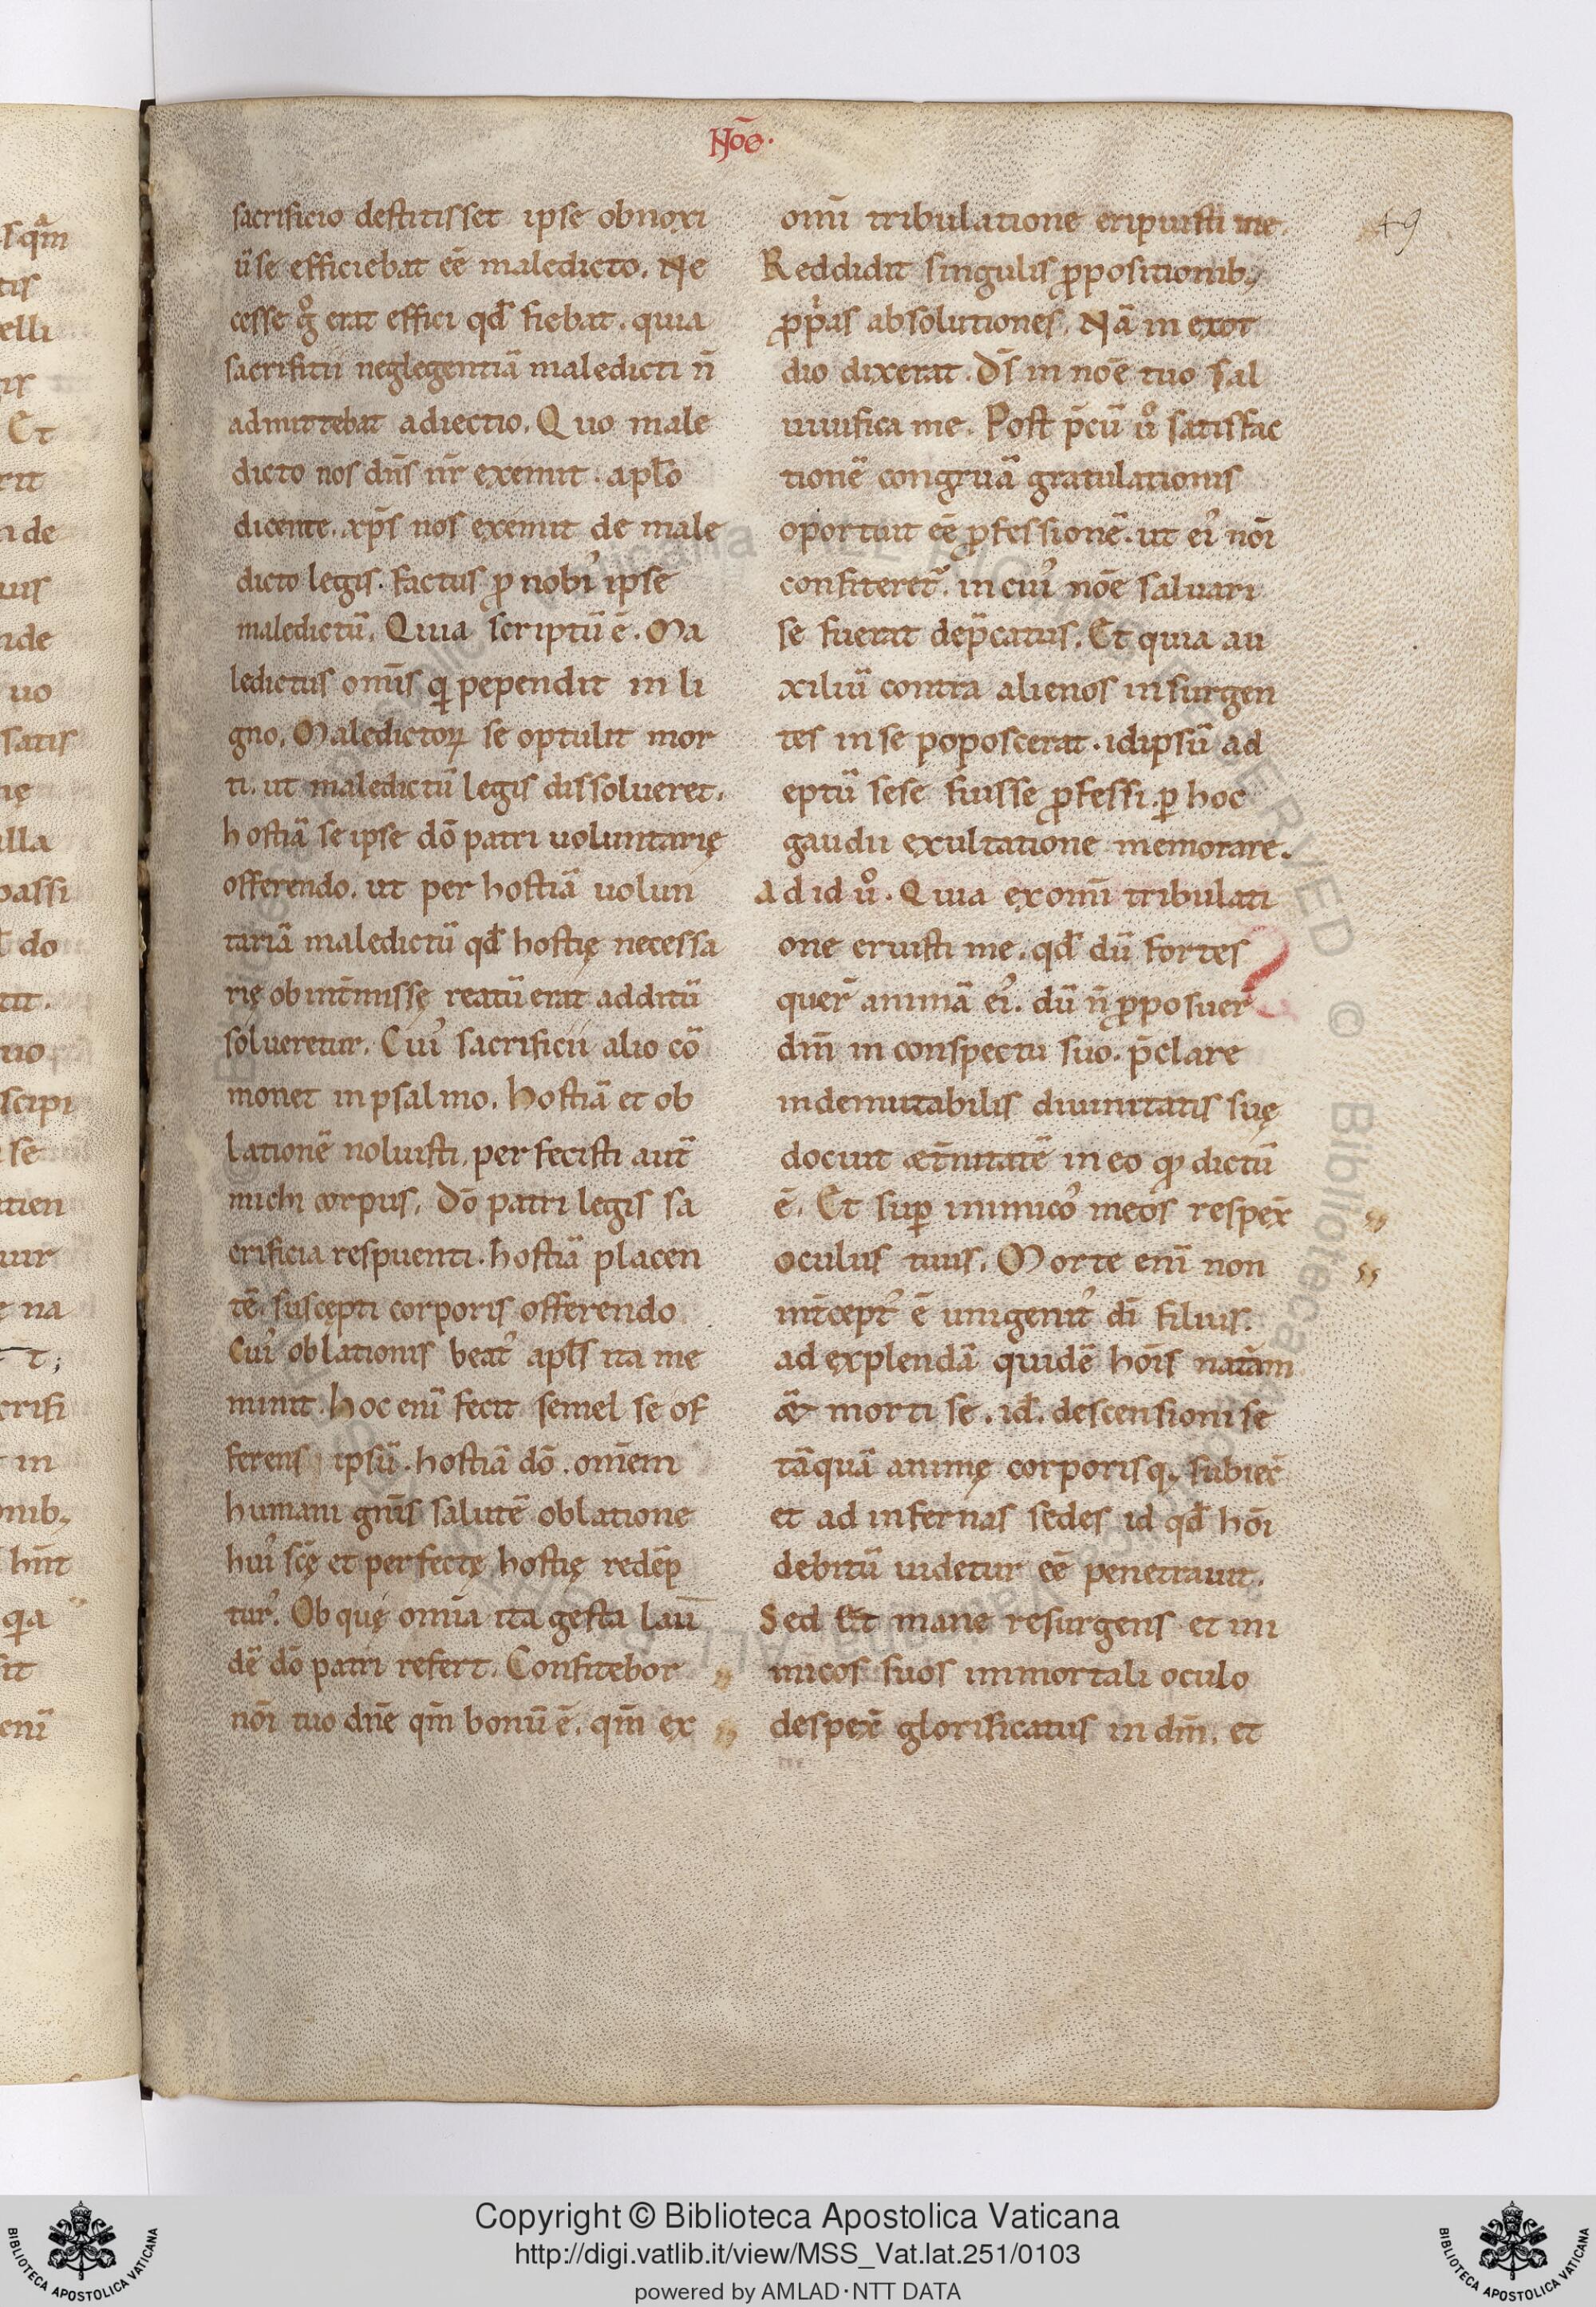 Nōe.
49
sacrificio destitisset ipse obnoxi
ū se efficiebat eē maledicto. Ne
cesse gͦ erat effici qđ fiebat. quia
sacrifitii neglegentiā maledicti n̄
admittebat adiectio. Quo male
dicto nos dn̄s nr̄ exemit. apl̄o
dicente. xp̄s nos exemit de male
dicto legis. factus ꝓ nobiꝰ ipse
maledictū. Quia scriptū ē. Ma
ledictus omīs qi pependit in li
gno. Maledictoꝝ se optulit mor
ti. ut maledictū legis dissolueret.
hostiā se ipse dō patri uoluntarię
offerendo. ut per hostiā uolun
tariā maledictū qđ hostię necessa
rię ob int̄missę reatū erat additū
solueretur. Cuiꝰ sacrificii alio cō
monet in psalmo. Hostiā et ob
lationē noluisti. perfecisti aut̄
michi corpus. Dō patri legis sa
crificia respuenti. hostiā placen
tē. suscepti corporis offerendo
Cuiꝰ oblationis beatꝰ apl̄s ita me
minit. Hoc enī fecit semel se of
ferens ipsū. hostiā dō. omīem
humani gn̄is salutē oblatione
huiꝰ scę̄ et perfectę hostię redēp
turꝰ. Ob quę omīa ita gesta lau
dē dō patri refert. Confitebor
nōi tuo dn̄e qm̄ bonū ē. qm̄ ex
omī tribulatione eripuisti me.
Reddidit singulis ꝓpositionibꝫ
ꝓprias absolutiones. Nā in exor
dio dixerat. Ds̄ in nōe tuo sal
uiuifica me. Post p̄cū uͦ satisfac
tionē congruā gratulationis
oportuit eē ꝓfessionē. ut eiꝰ nōi
confiteret᷑. in cuiꝰ nōe saluari
se fuerat dep̄catus. Et quia au
xiliū contra alienos insurgen
tes in se poposcerat. idipsū ad
eptū sese fuisse ꝓfessi. ꝑ hoc
gaudii exultatione memorare.
Ad id uͦ. Quia ex omī tribulati
one eruisti me. qđ dū fortes
quer̄ animā eiꝰ. dū n̄ ꝓposuer̄
dm̄ in conspectu suo. p̄clare
indemutabilis diuinitatis suę
docuit æt̄nitatē in eo qꝫ dictū
ē. Et suꝑ inimicoꝰ meos respex̄
oculus tuus. Morte enī non
int̄ceptꝰ ē unigenitꝰ dī filius.
ad explendā quidē hōīs natām
æ morti se. id̄. descensioni se
tāquā animę corporisqꝫ subiec̄
et ad infernas sedes id qđ hōi
debitū uidetur eē penetrauit.
Sed Et mane resurgens et ini
micos suos immortali oculo
despex̄ glorificatus in dm̄. et
Copyright © Biblioteca Apostolica Vaticana
http://digi.vatlib.it/view/MSS_Vat.lat.251/0103
powered by AMLAD·NTT DATA